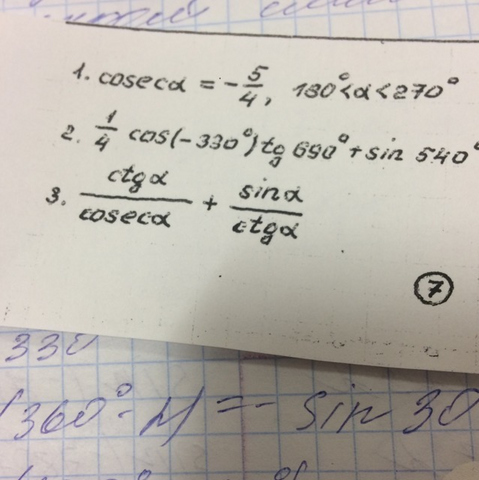 1. cosecα = -5/4, 180°<α<270°
2. 1/4 cos(-330°)tg 690°+sin 540°
3. ctgα/cosecα + sinα/ctgα
7
330
360°-
= - sin 30